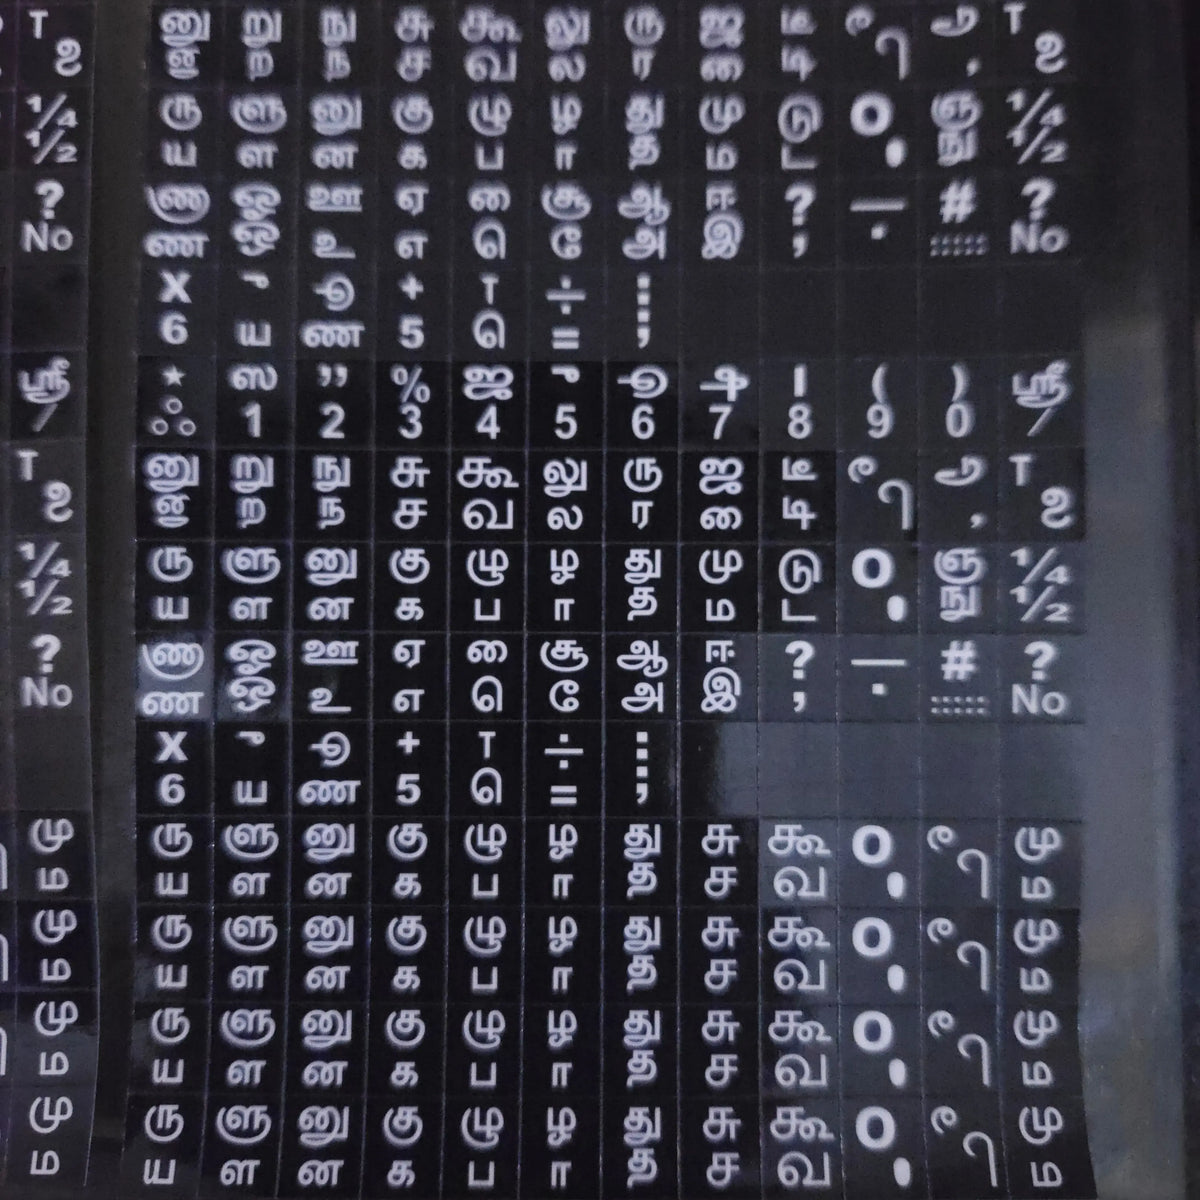 T னு று நு சு கூ லு ரு ஜ டீ T
உ ஞ ற ந ச வ ல ர ை டி , உ
1/4 ரு ளு னு கு ழு ழ து மு டு ஞ 1/4
1/2 ய ள ன க ப ா த ம ட நு 1/2
? ணு ஓ ஊ ஏ ை சூ ஆ ஈ ? — # ?
No ண ஒ உ எ ெ ே அ இ , . No
X + ÷
6 ய ண 5 ெ = ;
ஸ்ரீ * ஸ ,, % ஜ ( ) ஸ்ரீ
/ 1 2 3 4 5 6 7 8 9 0 /
T னு று நு சு கூ லு ரு ஜ டீ T
உ ஞ ற ந ச வ ல ர ை டி , உ
1/4 ரு ளு னு கு ழு ழ து மு டு ஞ 1/4
1/2 ய ள ன க ப ா த ம ட நு 1/2
? ணு ஓ ஊ ஏ ை சூ ஆ ஈ ? — # ?
No ண ஒ உ எ ெ ே அ இ , . No
X + ÷
6 ய ண 5 ெ = ;
மு ரு ளு னு கு ழு ழ து சு கூ மு
ம ய ள ன க ப ா த ச வ ம
மு ரு ளு னு கு ழு ழ து சு கூ மு
ம ய ள ன க ப ா த ச வ ம
மு ரு ளு னு கு ழு ழ து சு கூ மு
ம ய ள ன க ப ா த ச வ ம
மு ரு ளு னு கு ழு ழ து சு கூ மு
ம ய ள ன க ப ா த ச வ ம